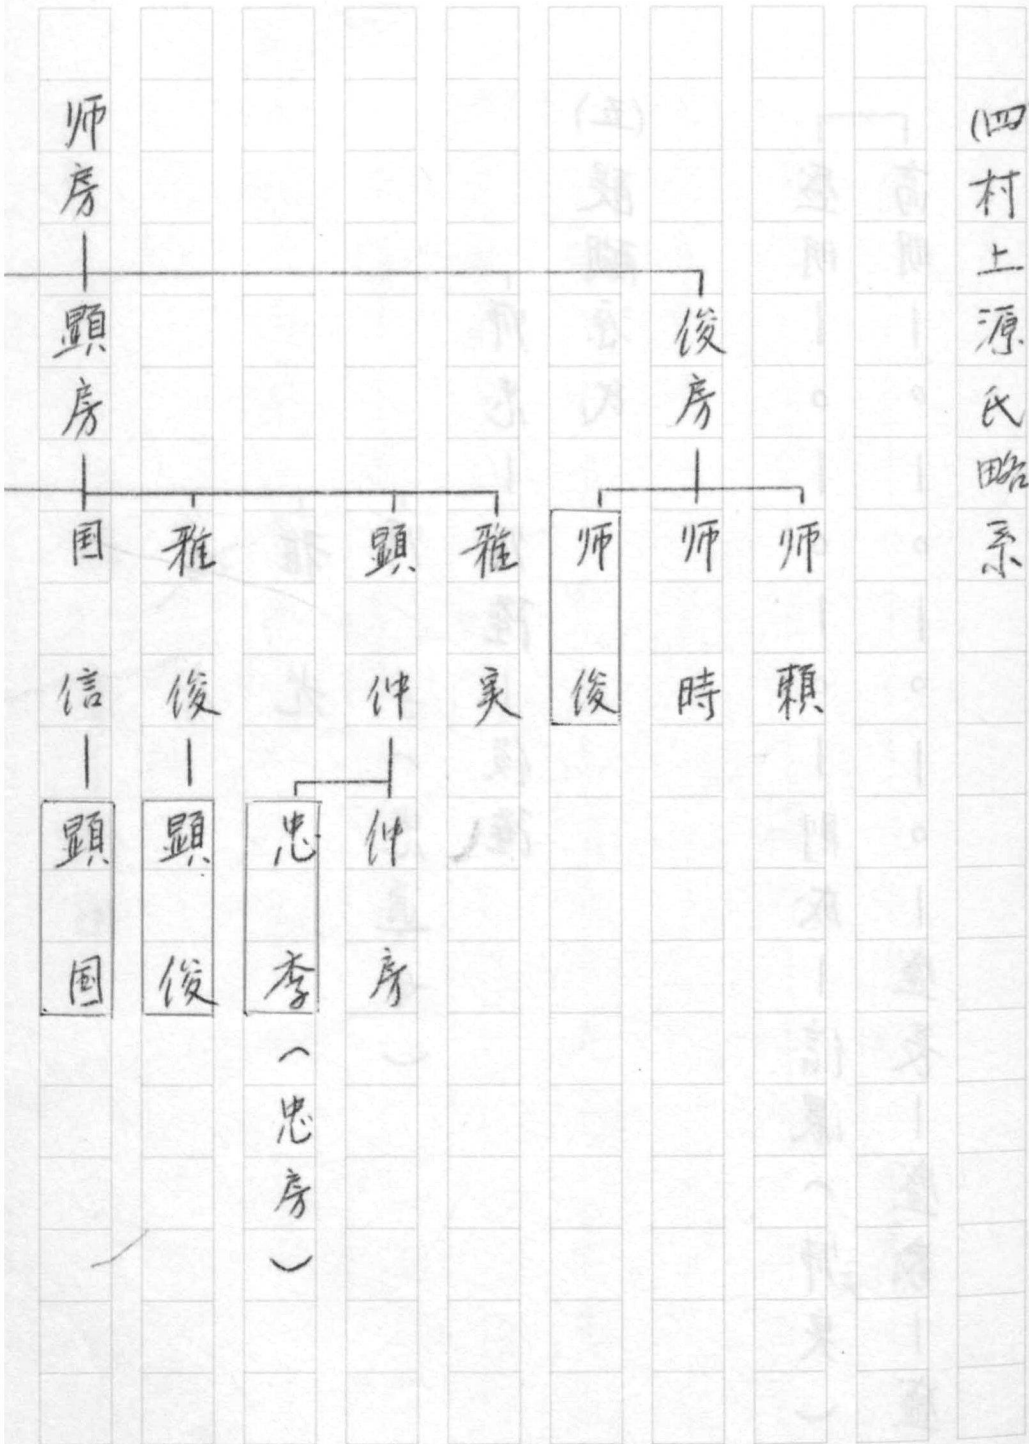 (四村上源氏略系
俊房
师頼
师時
师俊
师房―顕房
雅実
顕仲
仲房
忠季(忠房)
雅俊―顕俊
国信―顕国